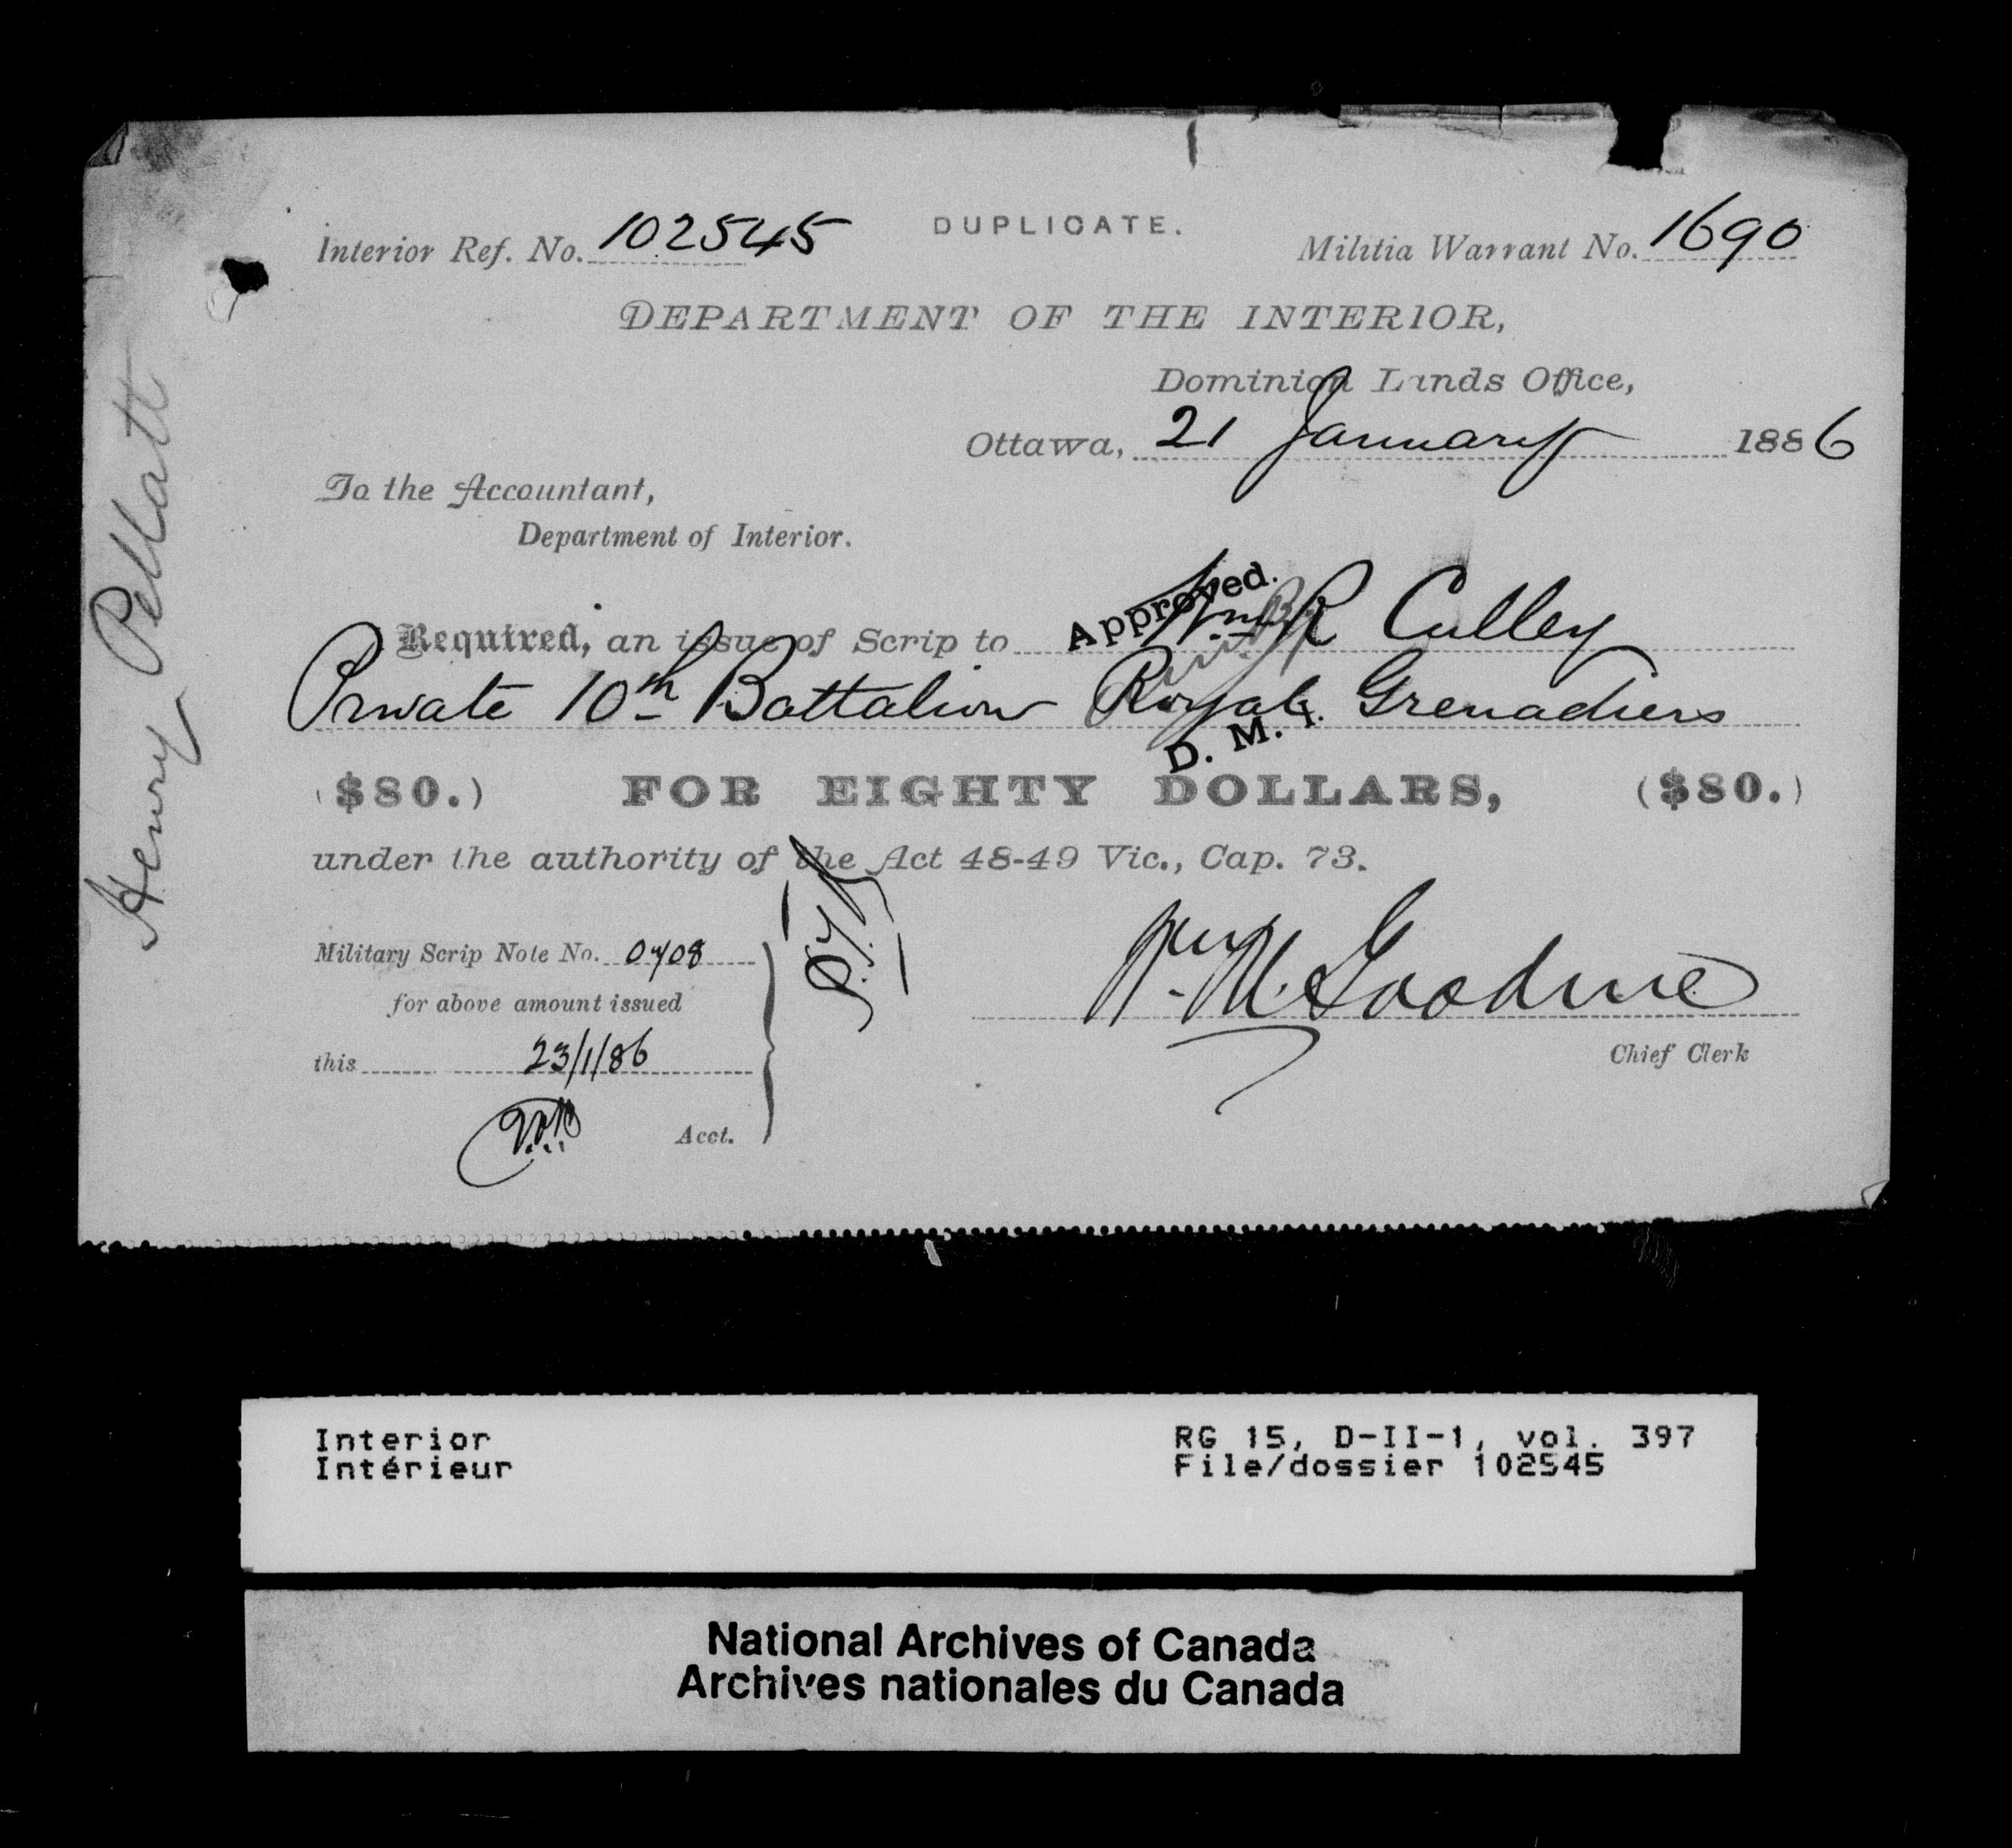 DUPLICATE.
Interior Ref. No. 102545
Militia Warrant No. 1690
DEPARTMENT OF THE INTERIOR,
Dominion Lands Office,
Ottawa, 21 January 1886
To the Accountant,
Department of Interior.
Approved.
Required, an issue of Scrip to Wm R Culley
Private 10th Battalion Royal Grenadiers
D. M. I.
($80.) FOR EIGHTY DOLLARS, ($80.)
under the authority of the Act 48-49 Vic., Cap. 73.
Military Scrip Note No. 0708
for above amount issued
this 23/1/86
Acct.
Wm M Goodeve
Chief Clerk
Henry Pellatt
Interior
Intérieur
RG 15, D-II-1, vol. 397
File/dossier 102545
National Archives of Canada
Archives nationales du Canada